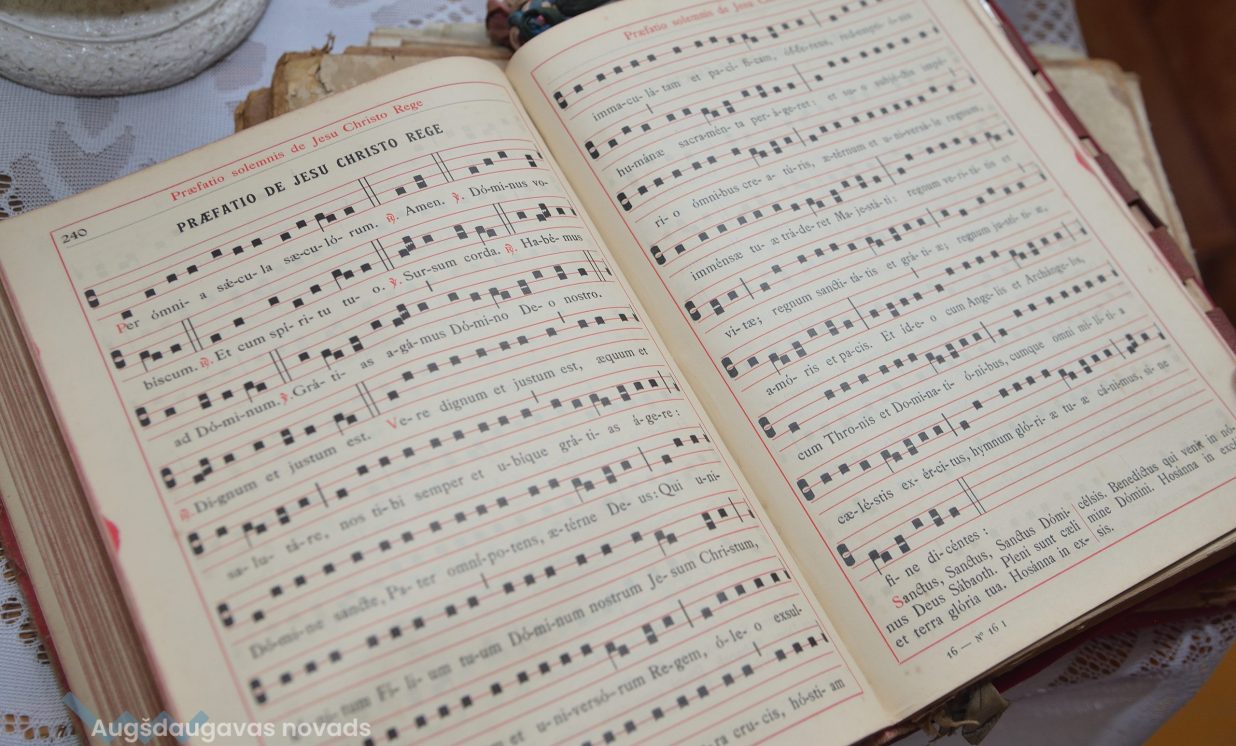 240
Præfatio solemnis de Jesu Christo Rege
PRÆFATIO DE JESU CHRISTO REGE
Per ómni- a sǽ-cu- la sæ-cu- ló- rum. ℟. Amen. ℣. Dó-mi-nus vo-
biscum. ℟. Et cum spi- ri- tu tu- o. ℣. Sur-sum corda. ℟. Ha-bé- mus
ad Dó-mi-num. ℣. Grá- ti- as a-gá-mus Dó-mi-no De- o nostro.
℟. Di-gnum et justum est. Ve- re dignum et justum est, æquum et
sa- lu- tá- re, nos ti- bi semper et u-bique grá- ti- as á-ge- re :
Dó-mi- ne sancte, Pa- ter omni-po-tens, æ-térne De- us : Qui u-ni-
num Fí- li- um tu-um Dó-mi-num nostrum Je- sum Chri-stum,
et u-ni-versó- rum Re-gem, ó-le- o exsul-
cru- cis, hó-sti- am
Præfatio solemnis de Jesu Christo
imma-cu- lá- tam et pa-ci- fi-cam,
hu-mánæ sacra-mén- ta per- á-ge-ret : et su- o subjé-ctis impé-
ri- o ómni-bus cre- a- tú- ris, æ-térnum et u- ni-versá- le regnum,
imménsæ tu- æ trá-de- ret Ma- je-stá-ti : regnum ve-ri- tá- tis et
vi- tæ; regnum sancti- tá- tis et grá- ti- æ; regnum ju-stí- ti- æ,
a-mó- ris et pa-cis. Et id-e- o cum Ange- lis et Archánge- lis,
cum Thro-nis et Do-mi-na-ti- ó-ni-bus, cumque omni mi- lí- ti- a
cæ- lé-stis ex- ér-ci- tus, hymnum gló-ri- æ tu- æ cá-ni-mus, si- ne
fi- ne di- céntes :
Sanctus, Sanctus, Sanctus Dómi-
nus Deus Sábaoth. Pleni sunt cæli
et terra glória tua. Hosánna in ex-
célsis. Benedíctus qui venit in nó-
mine Dómini. Hosánna in excél-
sis.
16 — Nº 16 I
Augšdaugavas novads